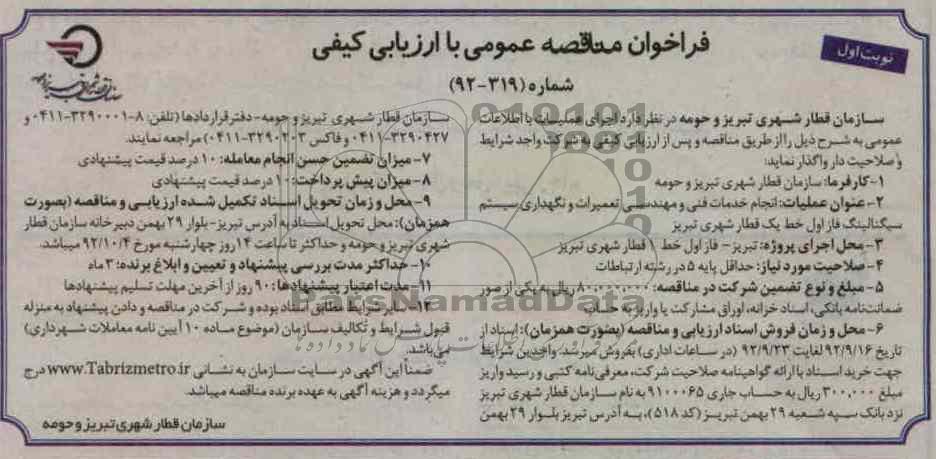 نوبت اول
فراخوان مناقصه عمومی با ارزیابی کیفی
شماره (۳۱۹-۹۲)
سازمان قطار شهری تبریز و حومه در نظر دارد اجرای عملیات با اطلاعات
عمومی به شرح ذیل را از طریق مناقصه و پس از ارزیابی کیفی به شرکت واجد شرایط
و صلاحیت دار واگذار نماید:
۱-کارفرما: سازمان قطار شهری تبریز و حومه
۲- عنوان عملیات: انجام خدمات فنی و مهندسی تعمیرات و نگهداری سیستم
سیگنالینگ فاز اول خط یک قطار شهری تبریز
۳- محل اجرای پروژه: تبریز- فاز اول خط ۱ قطار شهری تبریز
۴- صلاحیت مورد نیاز: حداقل پایه ۵ در رشته ارتباطات
۵- مبلغ و نوع تضمین شرکت در مناقصه: ۸۰۰,۰۰۰,۰۰۰ ریال به یکی از صور
ضمانتنامه بانکی، اسناد خزانه، اوراق مشارکت یا واریز به حساب
۶- محل و زمان فروش اسناد ارزیابی و مناقصه (بصورت همزمان): اسناد از
تاریخ ۹۲/۹/۱۶ لغایت ۹۲/۹/۲۳ (در ساعات اداری) بفروش میرسد. واجدین شرایط
جهت خرید اسناد با ارائه گواهینامه صلاحیت شرکت، معرفی نامه کتبی و رسید واریز
مبلغ ۳۰۰,۰۰۰ ریال به حساب جاری ۹۱۰۰۰۶۵ به نام سازمان قطار شهری تبریز
نزد بانک سپه شعبه ۲۹ بهمن تبریز (کد ۵۱۸)، به آدرس تبریز بلوار ۲۹ بهمن
سازمان قطار شهری تبریز و حومه- دفتر قراردادها (تلفن: ۸-۳۲۹۰۰۰۱-۰۴۱۱ و
۰۴۱۱-۳۲۹۰۴۲۷ و فاکس ۳۲۹۰۲۰۳-۰۴۱۱) مراجعه نمایند.
۷- میزان تضمین حسن انجام معامله: ۱۰ درصد قیمت پیشنهادی
۸- میزان پیش پرداخت: ۱۰ درصد قیمت پیشنهادی
۹- محل و زمان تحویل اسناد تکمیل شده ارزیابی و مناقصه (بصورت
همزمان): محل تحویل اسناد به آدرس تبریز- بلوار ۲۹ بهمن دبیرخانه سازمان قطار
شهری تبریز و حومه و حداکثر تا ساعت ۱۴ روز چهارشنبه مورخ ۹۲/۱۰/۴ میباشد.
۱۰- حداکثر مدت بررسی پیشنهاد و تعیین و ابلاغ برنده: ۳ ماه
۱۱- مدت اعتبار پیشنهادها: ۹۰ روز از آخرین مهلت تسلیم پیشنهادها
۱۲- سایر شرایط مطابق اسناد بوده و شرکت در مناقصه و دادن پیشنهاد به منزله
قبول شرایط و تکالیف سازمان (موضوع ماده ۱۰ آیین نامه معاملات شهرداری)
می باشد.
ضمناً این آگهی در سایت سازمان به نشانی www.Tabrizmetro.ir درج
میگردد و هزینه آگهی به عهده برنده مناقصه میباشد.
سازمان قطار شهری تبریز و حومه
ParsNamadData